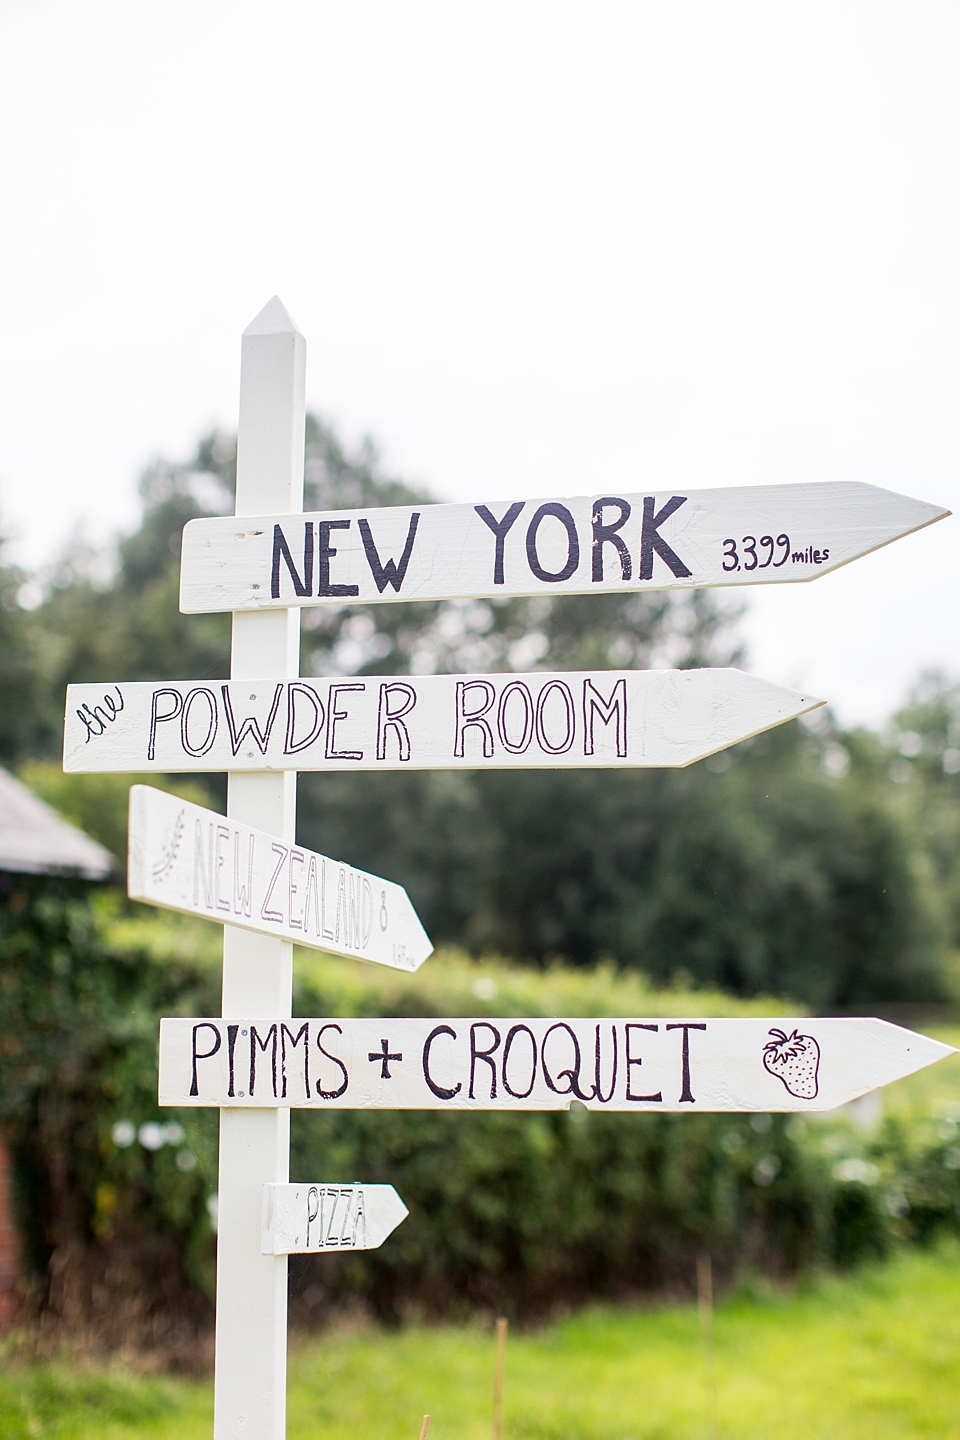 NEW YORK 3,399 miles
the POWDER ROOM
NEW ZEALAND
PIMMS + CROQUET
PIZZA